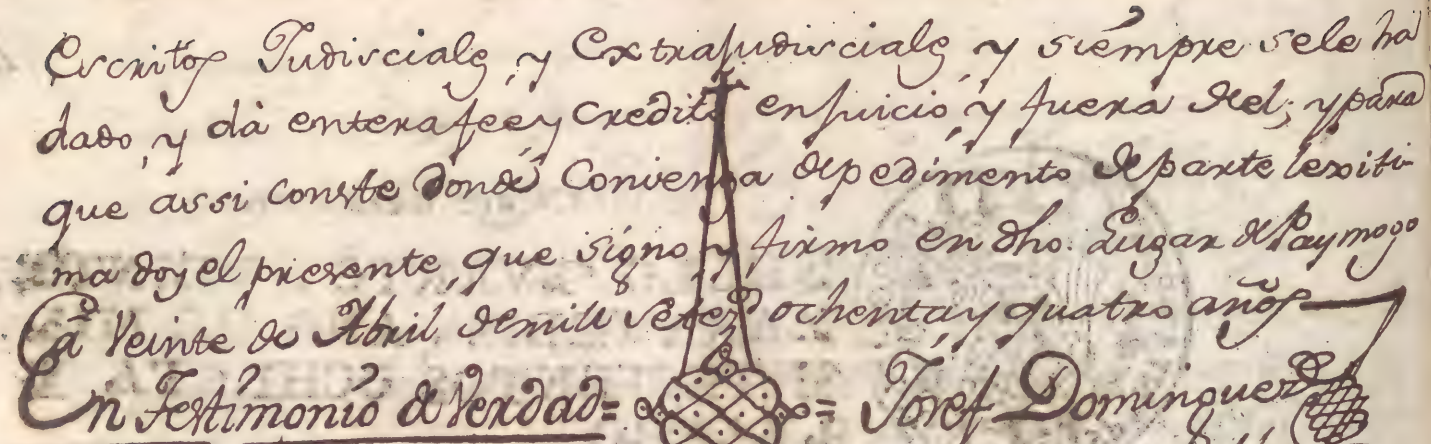 Escritos Judisciales, y Extrajudisciales y siempre sele ha
dado, y dà entera feé, y credito en juicio, y fuera del; y para
que assi conste donde Convenga depedimento de parte lexiti-
ma doy el presente, que signo y firmo en dho. Lugar de Paymogo
à Veinte de Abril demill setez.s ochenta y quatro años
En Testimonio de Verdad = = Josef Dominguez